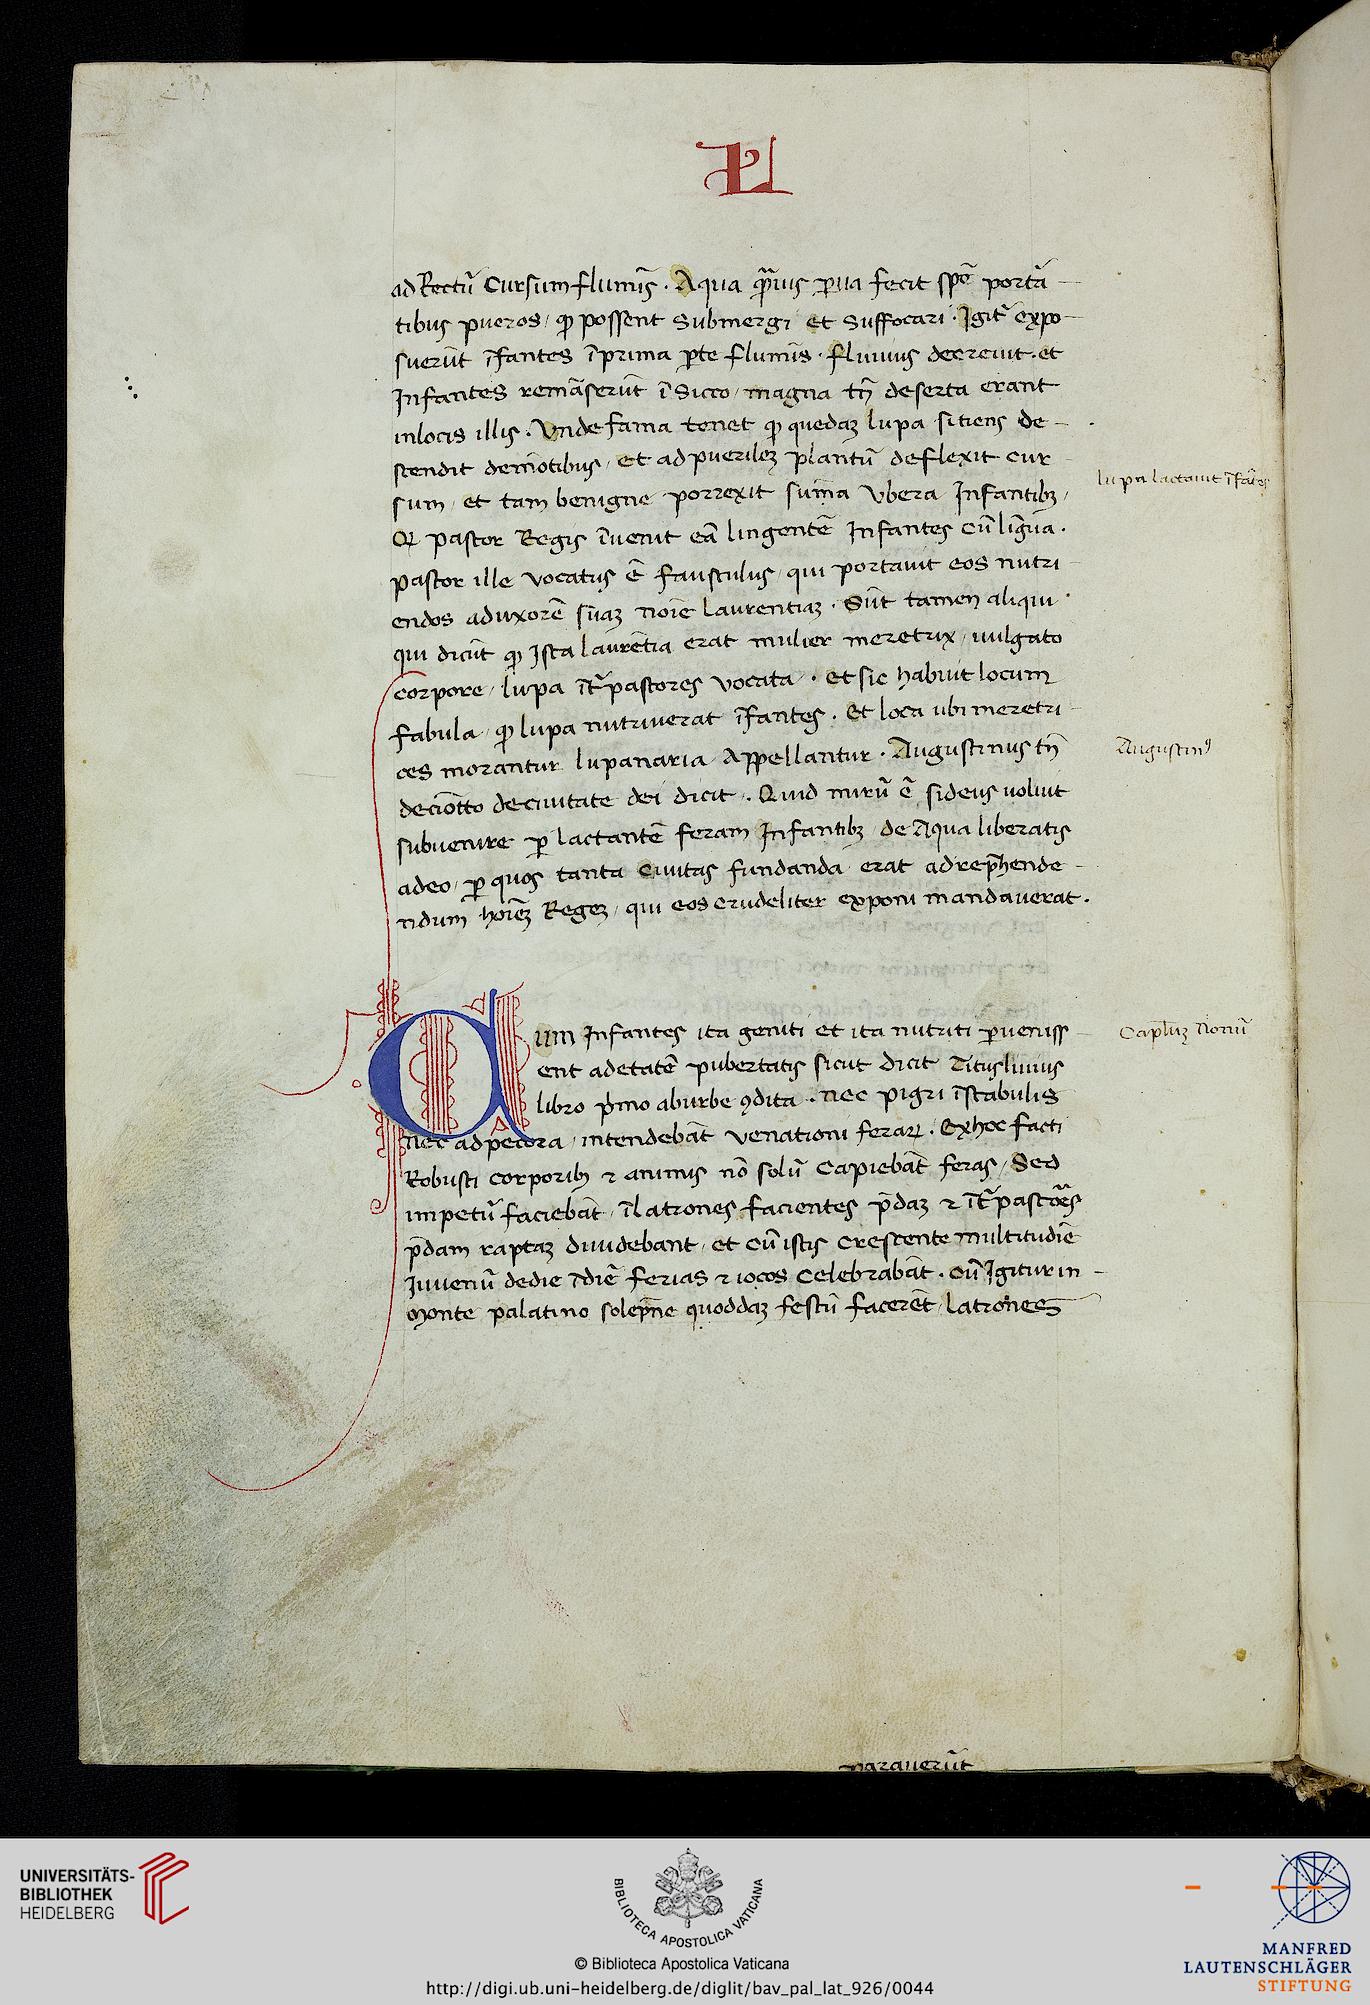 L
ad Rectū Cursum flumīs . Aqua ꝑua fecit spē portā
tibus pueros / ꝙ possent submergi et suffocari . Igitᷣ expo
suerūt īfantes ī prima ꝑte flumīs . fluuius decreuit . et
Infantes remāserūt ī sicco / magna tn̄ deserta erant
in locis illis . Vnde fama tenet ꝙ quedaꝫ lupa sitiens de
scendit demōtibus / et ad puerileꝫ plantū deflexit cur
sum / et tam benigne porrexit sum̄a Vbera Infantibꝫ /
pastor Regis īuenit eā lingentē Infantes cū lingua .
pastor ille vocatus ē faustulus / qui portauit eos nutri
endos ad uxorē suaꝫ noīe laurentiaꝫ . Sūt tamen aliqui
qui dicūt ꝙ Ista laurētia erat mulier meretrix / uulgato
corpore / lupa īt pastores vocata . et sic habuit locum
fabula / ꝙ lupa nutriuerat īfantes . Et loca ubi meretri
ces morantur lupanaria Appellantur . Augustinus tn̄
de ciuitate dei dicit . Quid mirū ē si deus uoluit
subuenire ꝑ lactantē feram Infantibꝫ de Aqua liberatis
adeo / ꝑ quos tanta Ciuitas fundanda erat ad rep̄hende
ndum hoīeꝫ Regeꝫ / qui eos crudeliter exponi mandauerat .
lupa lactauit īfātes
Augustinꝰ
Cum Infantes ita geniti et ita nutriti ꝑueniss
ent ad etatē pubertatis sicut dicit Titus liuius
libro p̄mo ab urbe ꝯdita . nec pigri ī stabulis
nec ad pecora / intendebāt venationi feraꝝ . Ex hoc facti
Robusti corporibꝫ ⁊ animis nō solū capiebāt feras / Sed
impetū faciebāt / ī latrones facientes p̄daꝫ ⁊ īt pastores
p̄dam raptaꝫ diuidebant / et cū istis crescente multitudīe
Iuuenū de die ī diē ferias ⁊ iocos celebrabāt . Cū Igitur in
Monte palatino solep̄ne quoddaꝫ festū facerēt latrones
Cap̄luꝫ Nonū
parauerūt
UNIVERSITÄTS-
BIBLIOTHEK
HEIDELBERG
BIBLIOTECA APOSTOLICA VATICANA
© Biblioteca Apostolica Vaticana
http://digi.ub.uni-heidelberg.de/diglit/bav_pal_lat_926/0044
MANFRED
LAUTENSCHLÄGER
STIFTUNG